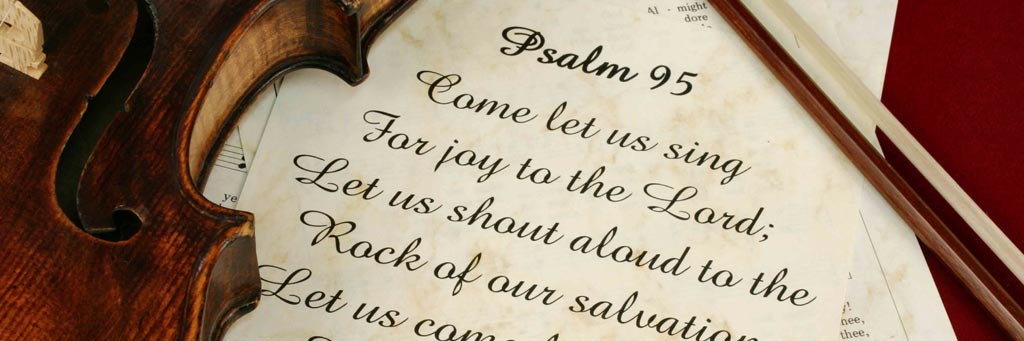 Al - might
dore
Psalm 95
Come let us sing
For joy to the Lord;
Let us shout aloud to the
Rock of our salvation
Let us come
ye
nee,
thee,